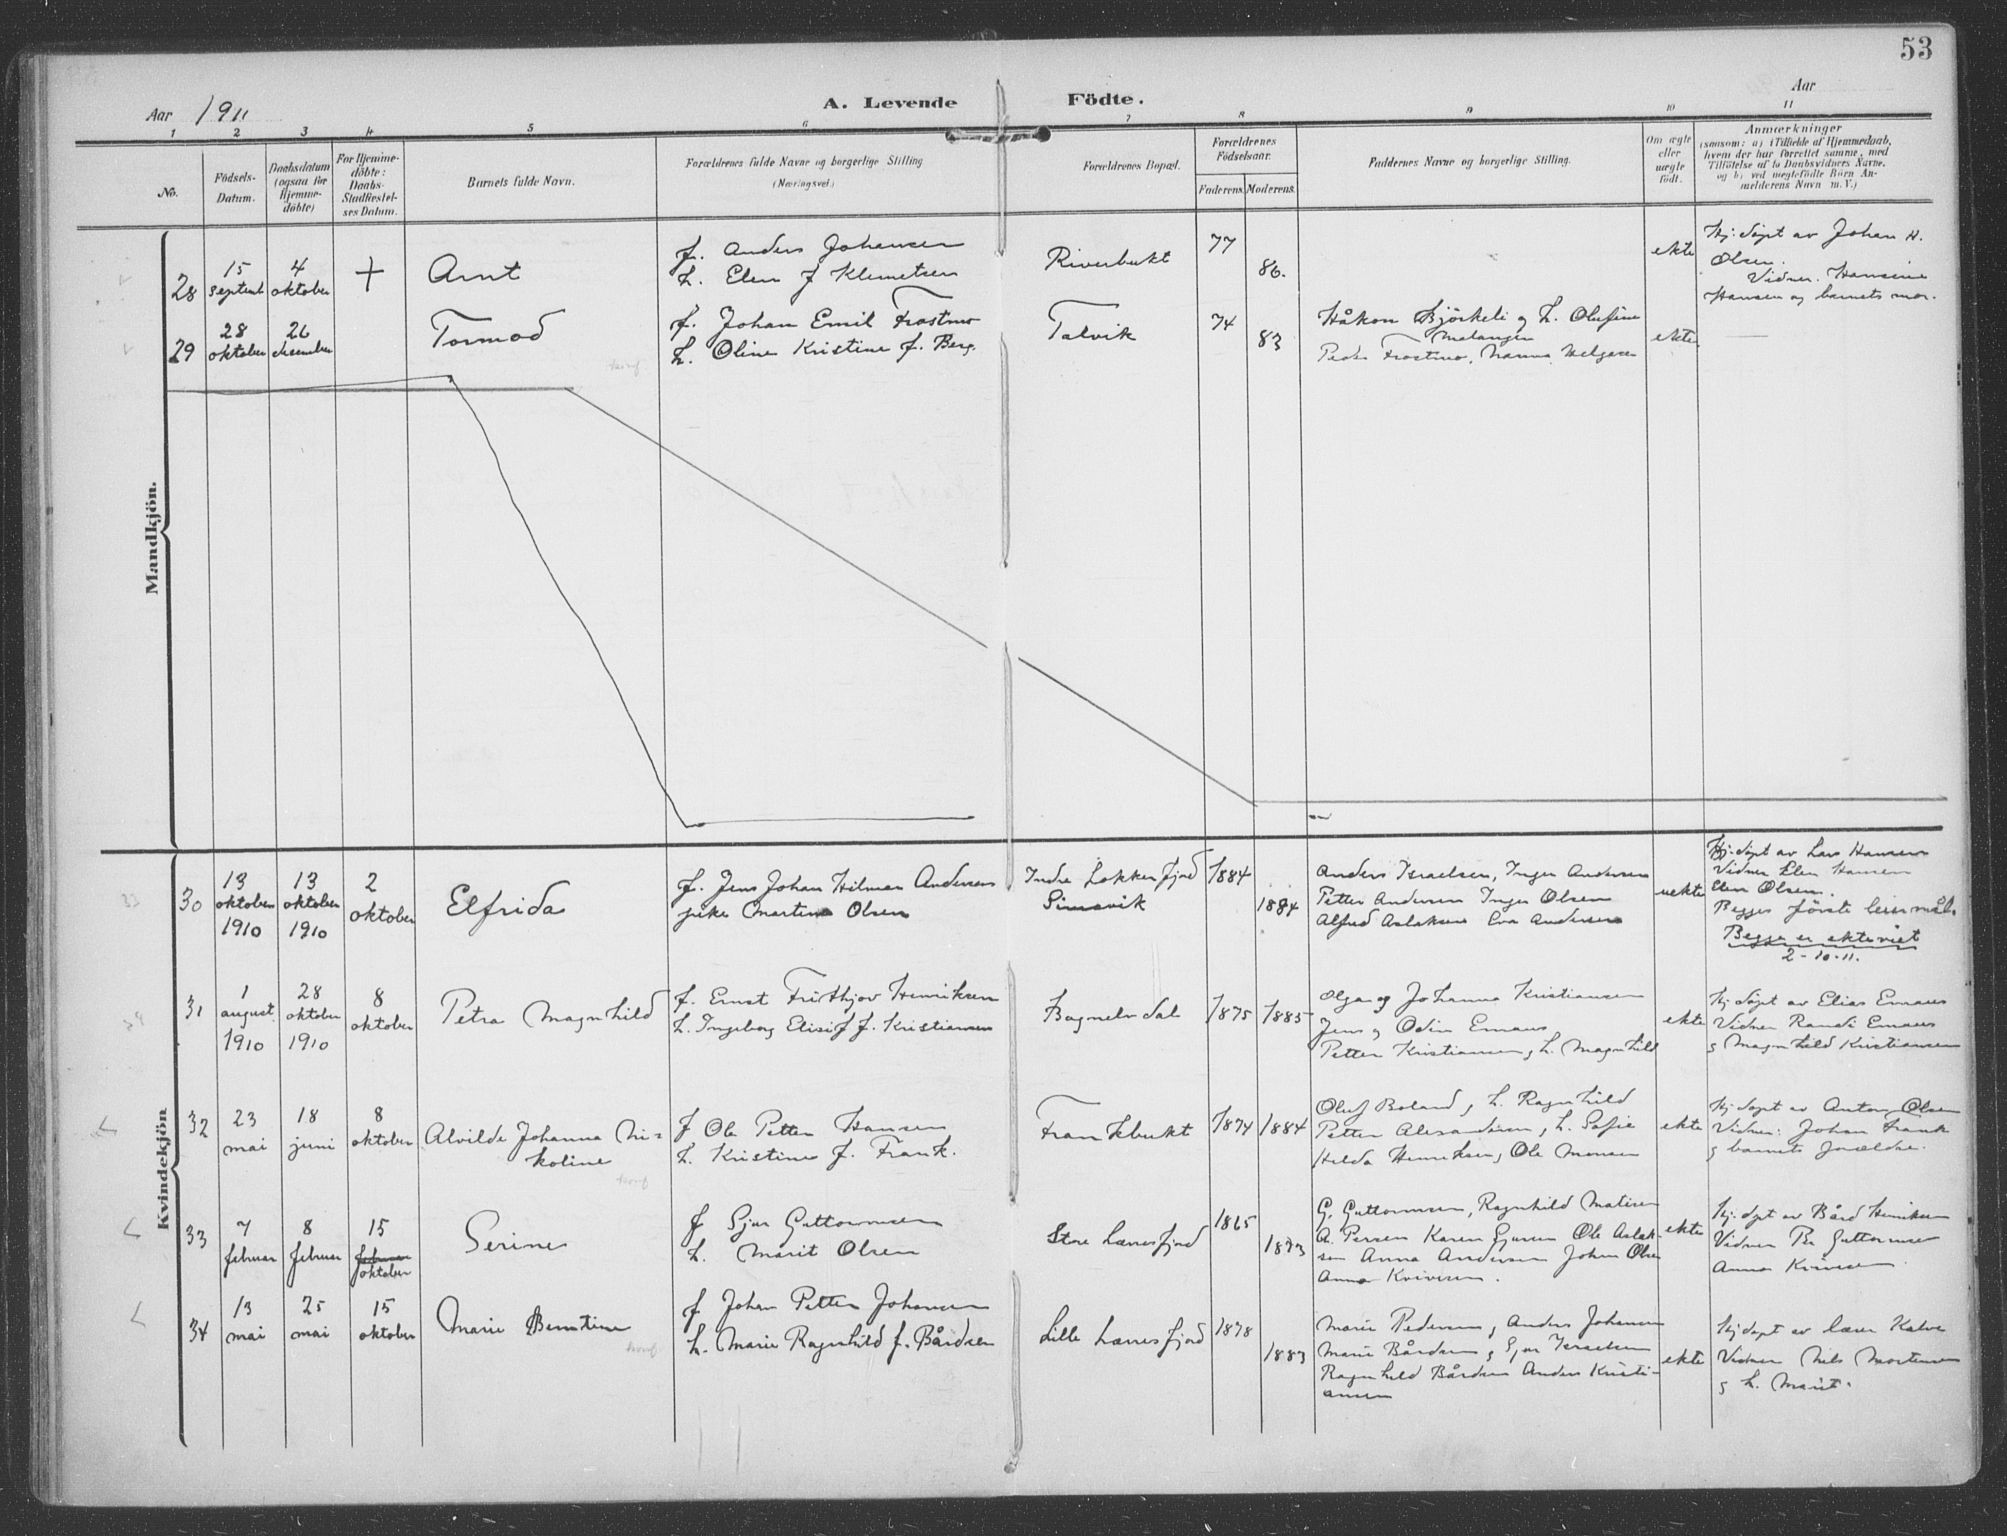 53
Aar 1911
A. Levende Födte.
Aar
1 2 3 4 5 6 7 8 9 10 11
No.
Födsels-
Datum.
Daabsdatum
(ogsaa for
Hjemme-
döbte)
For Hjemme-
döbte:
Daabs-
Stadfæstel-
ses Datum.
Barnets fulde Navn.
Forældrenes fulde Navne og borgerlige Stilling
(Næringsvei.)
Forældrenes Bopæl.
Forældrenes
Födselsaar.
Faderens. Moderens.
Faddernes Navne og borgerlige Stilling.
Om ægte
eller
uægte
födt.
Anmærkninger
(saasom: a) i Tilfælde af Hjemmedaab,
hvem der har forrettet samme, med
Tilföielse af to Daabsvidners Navne,
og b) ved uægtefödte Börn An-
mælderens Navn m. V.)
Mandkjön.
28
15
septemb
4
oktober
+
Arnt
f. Anders Johansen
h. Elen f Klemetsen
Riverbukt
77
86.
ekte
Hj. döpt av Johan H.
Olsen.
Vidner. Hansine
Hansen og barnets mor.
29
28
oktober
26
desember
Tormod
konf
f. Johan Emil Frostmo
h. Oline Kristine f. Berg.
Talvik
74
83
Håkon Björkeli og h. Olufine
Malangen
Peder Frostmo, Nanna Helgesen
ekte.
Kvindekjön
33
30
13
oktober
1910
13
oktober
1910
2
oktober
Elfrida
f. Jens Johan Hilmar Andersen
pike Martine Olsen
Indre Lokkerfjord
Simavik
1884
1884
Anders Israelsen, Inger Andersen
Petter Andersen Inger Olsen
Alfred Aslaksen Eva Andersen
uekte
Hj. döpt av Lars Hansen
Vidner Elen Hansen
Elen Olsen.
Begges förste leiermål.
Begge er ekteviet
2-10-11.
31
1
august
1910
28
oktober
1910
8
oktober
Petra Magnhild
f. Ernst Frithjov Henriksen
h. Ingeborg Elisif f. Kristiansen
Bognelvdal
1875
1885
Olga og Johanna Kristiansen
Jens og Odin Emaus
Petter Kristiansen, h. Magnhild
ekte
Hj. döpt av Elias Emaus
Vidner Randi Emaus
g Magnhild Kristiansen
32
23
mai
18
juni
8
oktober
Alvilde Johanna Ni-
koline
konf
f Ole Petter Hansen
h. Kristine f. Frank.
Frankbukt
1874
1884
Oluf Boland, h. Ragnhild
Petter Alexandersen, h. Sofie
Helda Henriksen, Ole Monsen
ekte
Hj. döpt av Anton Olsen
Vidner: Johan Frank
g barnets forældre.
33
7
februar
8
februar
15
februar
oktober
Serine
f Sjur Guttormsen
h. Marit Olsen
Store Lærresfjord
1865
1873
G. Guttormsen, Ragnhild Matisen
A. Persen Karen Ole Aslak-
sen Anna Andersen Johan Olsen
Anna Kvivesen.
ekte
Hj. döpt av Bård Henriksen
Vidner Per Guttormsen
Anna Kvivesen.
34
13
mai
25
mai
15
oktober
Marie Berntine
konf
f Johan Petter Johansen
h. Marie Ragnhild f. Bårdsen
Lille Lærresfjord
1878
1883
Marie Pedersen, Anders Johansen
Marie Bårdsen, Israelsen
Ragnhild Bårdsen Anders Kristi-
ansen
ekte
Hj döpt av lærer Kalve
Vidner Nils Mortensen
g h. Marit.